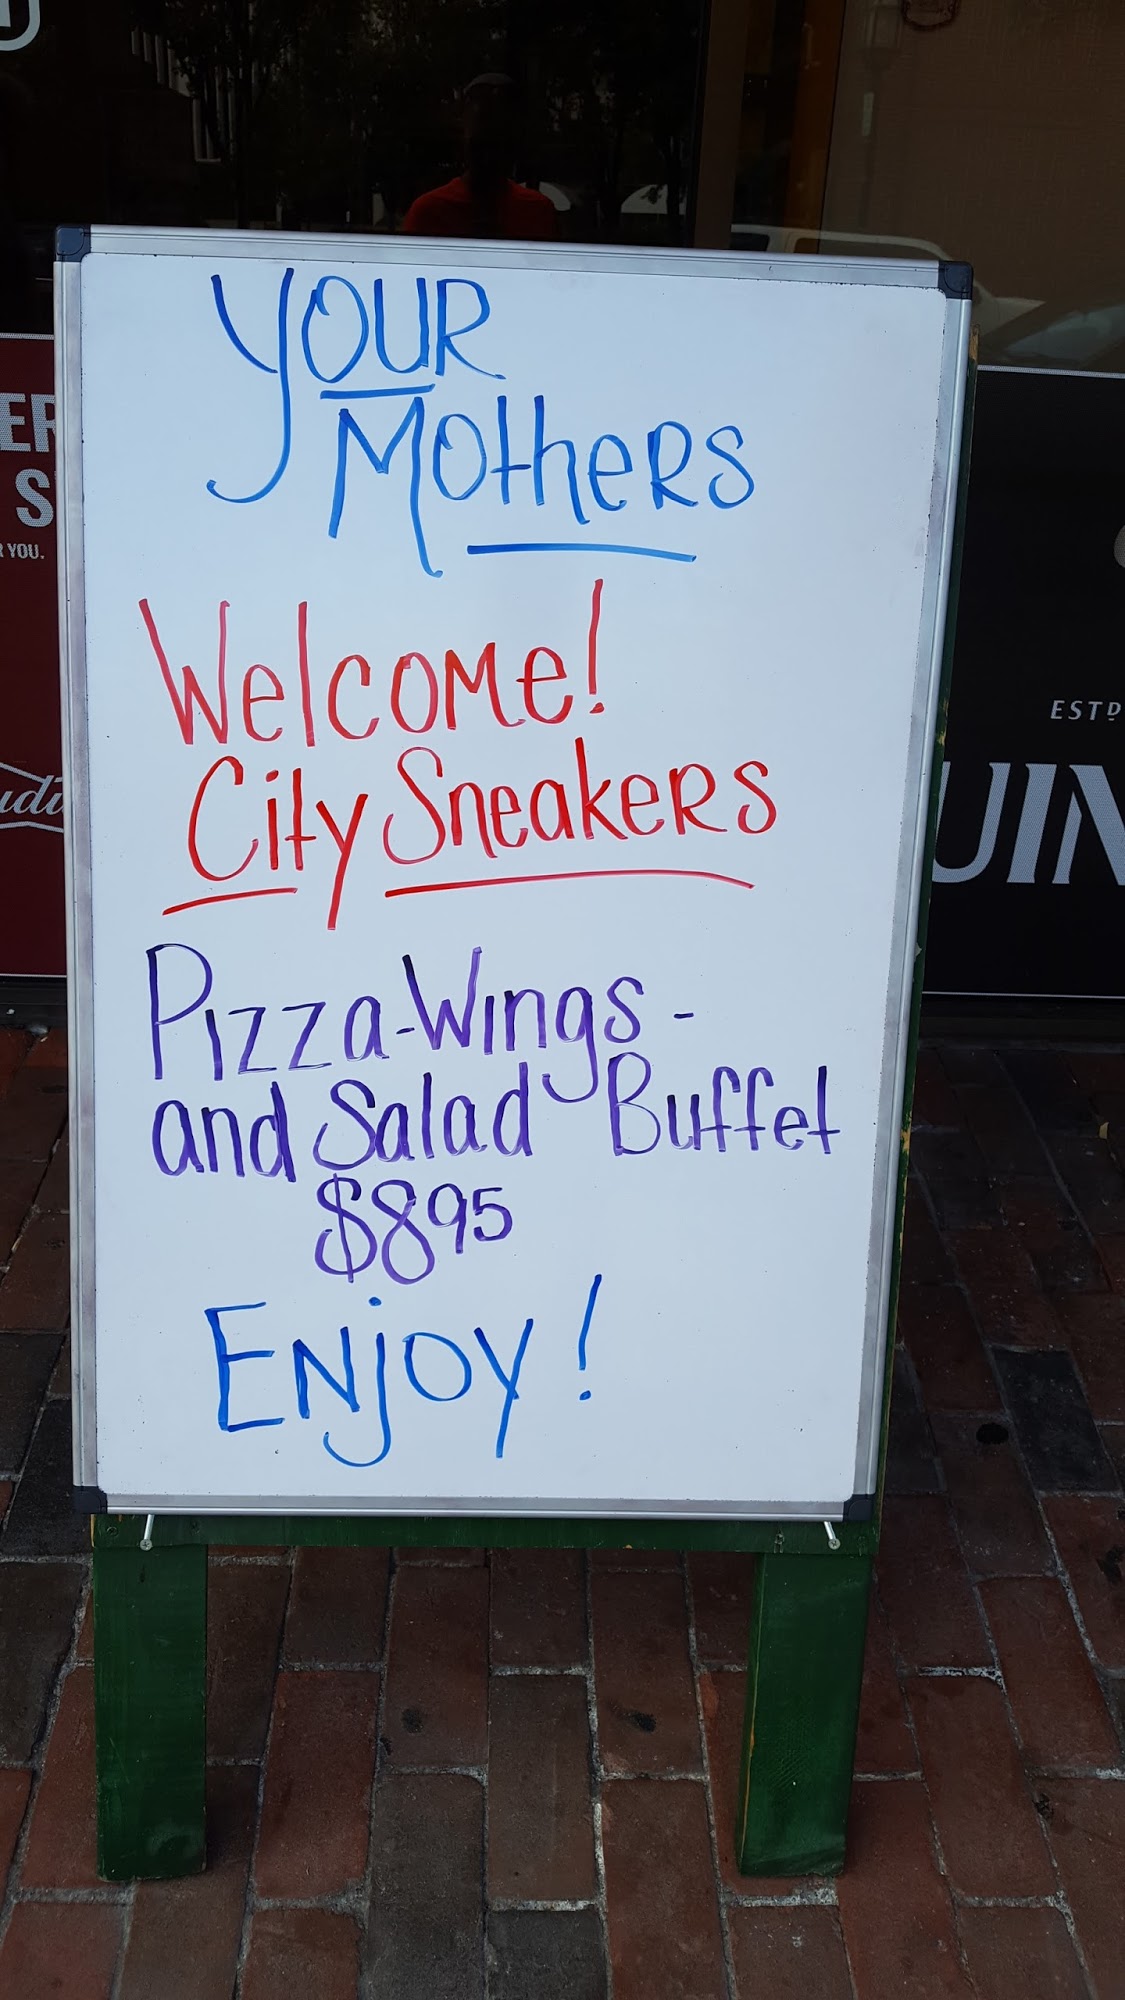 YOUR
MOTHERS
Welcome!
City Sneakers
Pizza-Wings-
and Salad Buffet
$895
ENjOY!
ER
S
R YOU.
ESTD
UIN